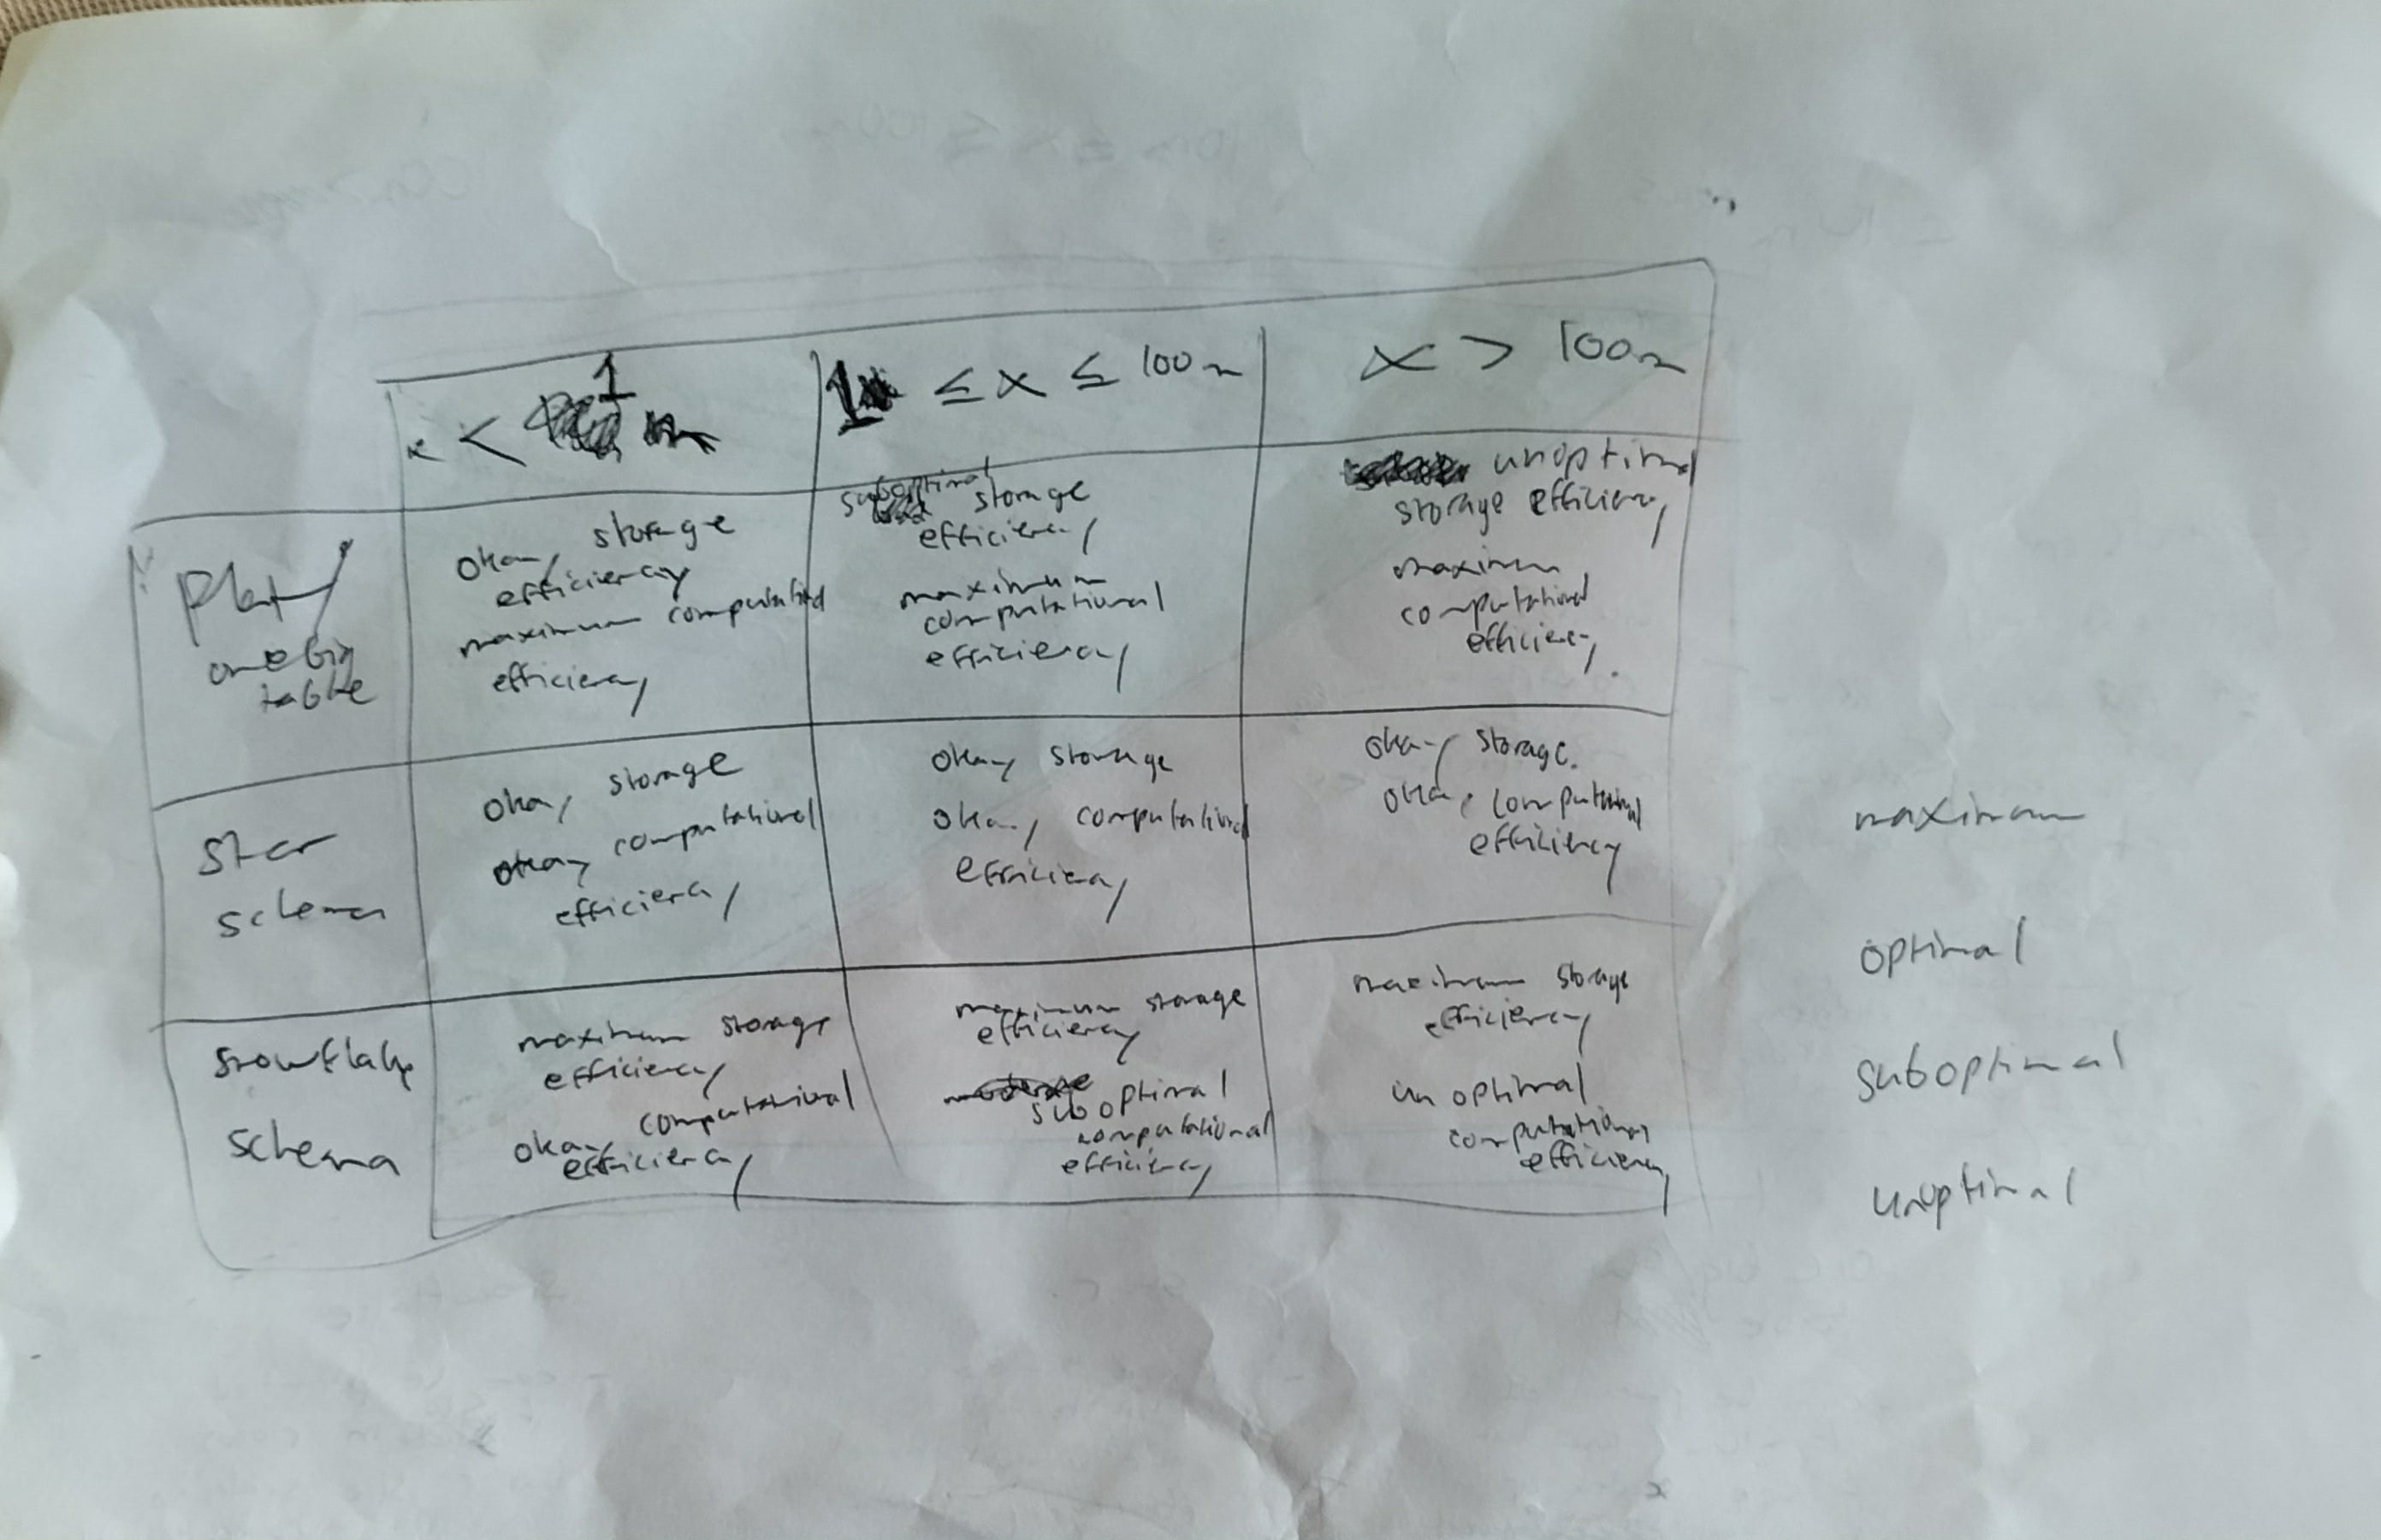 x < 1 m
1 ≤ x ≤ 100m
x > 100m
Flat/
one big
table
okay storage
efficiency
maximum computational
efficiency
suboptimal storage
efficiency
maximum
computational
efficiency
unoptimal
storage efficiency
maximum
computational
efficiency.
Star
schema
okay storage
okay computational
efficiency
okay storage
okay computational
efficiency
okay storage.
okay computational
efficiency
snowflake
schema
maximum storage
efficiency
okay computational
efficiency
maximum storage
efficiency
suboptimal
computational
efficiency
maximum storage
efficiency
unoptimal
computational
efficiency
maximum
optimal
suboptimal
unoptimal